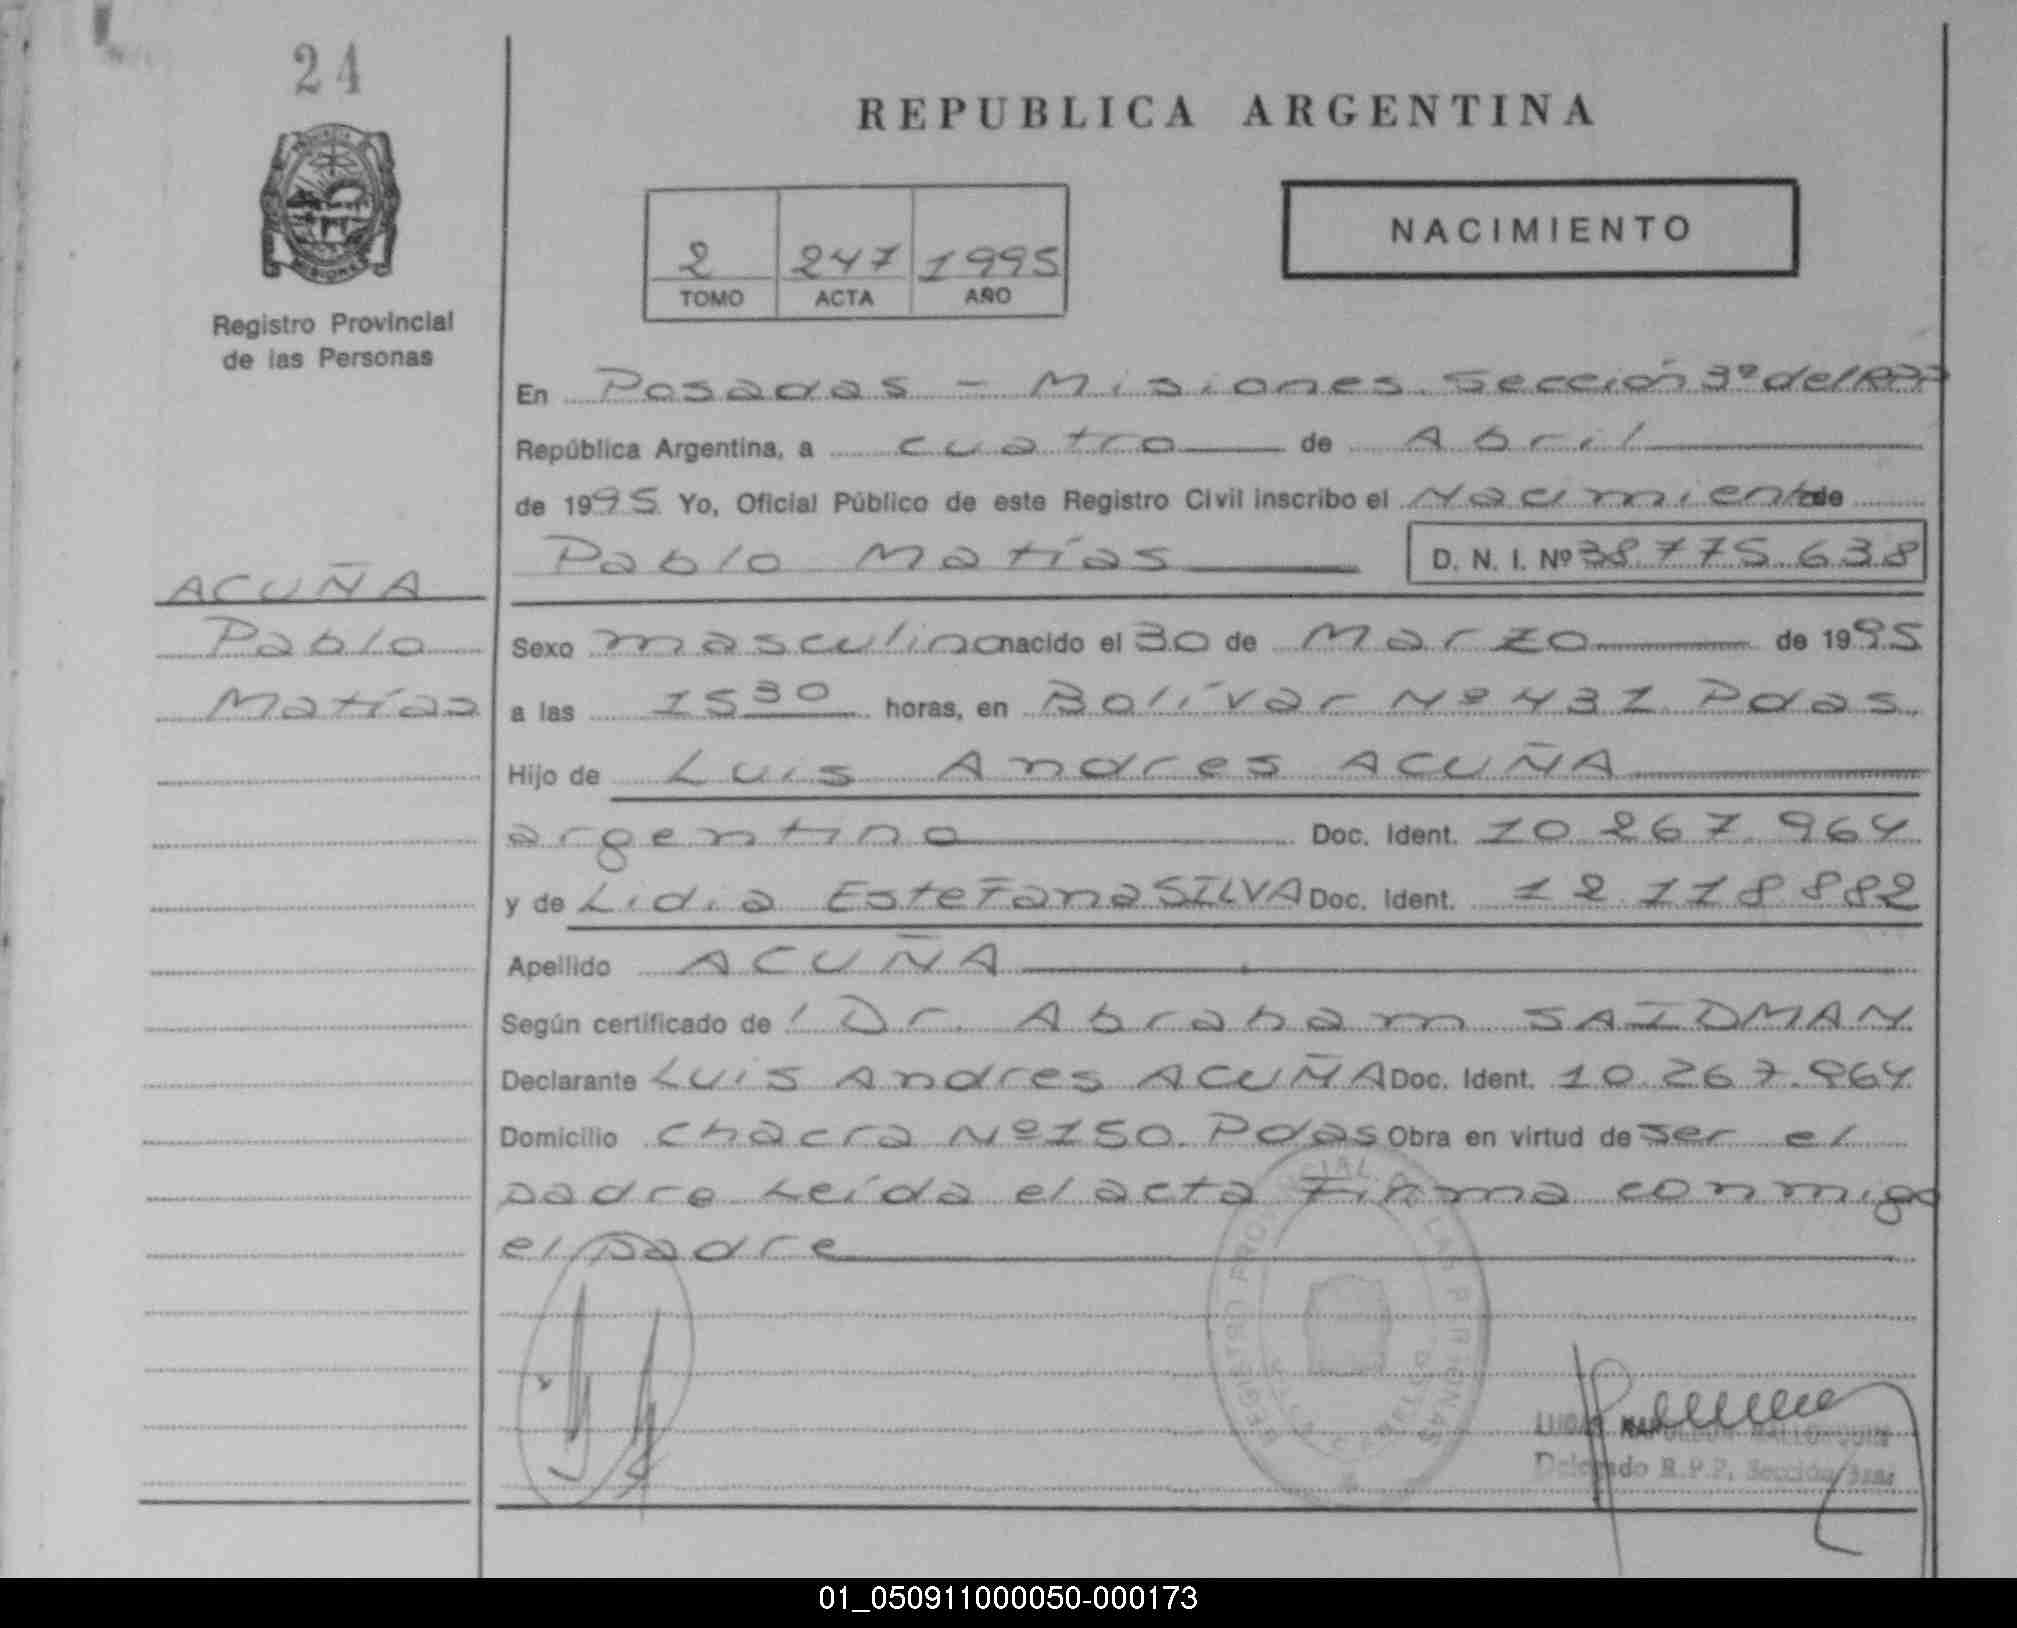 24
REPUBLICA ARGENTINA
NACIMIENTO
2 247 1995
TOMO ACTA AÑO
MISIONES
Registro Provincial
de las Personas
En Posadas - Misiones Sección 3º del
República Argentina, a cuatro de Abril
de 1995 Yo, Oficial Público de este Registro Civil inscribo el Nacimiento de
Pablo Matías D. N. I. Nº 38.775.638
ACUÑA
Pablo
Matías
Sexo masculino nacido el 30 de Marzo de 1995
a las 15 30 horas, en Bolívar Nº 431 Pdas.
Hijo de Luis Andres ACUÑA
argentino Doc. Ident. 10.267.964
y de Lidia Estefana SILVA Doc. Ident. 12.118.882
Apellido ACUÑA
Según certificado de Dr. Abraham SAIDMAN
Declarante Luis Andres ACUÑA Doc. Ident. 10.267.964
Domicilio Chacra Nº 150. Pdas Obra en virtud de ser el
padre Leída el acta Firma conmigo
el padre
REGISTRO PROVINCIAL DE LAS PERSONAS
Delegado R.P.P. Sección 3ra.
01_050911000050-000173